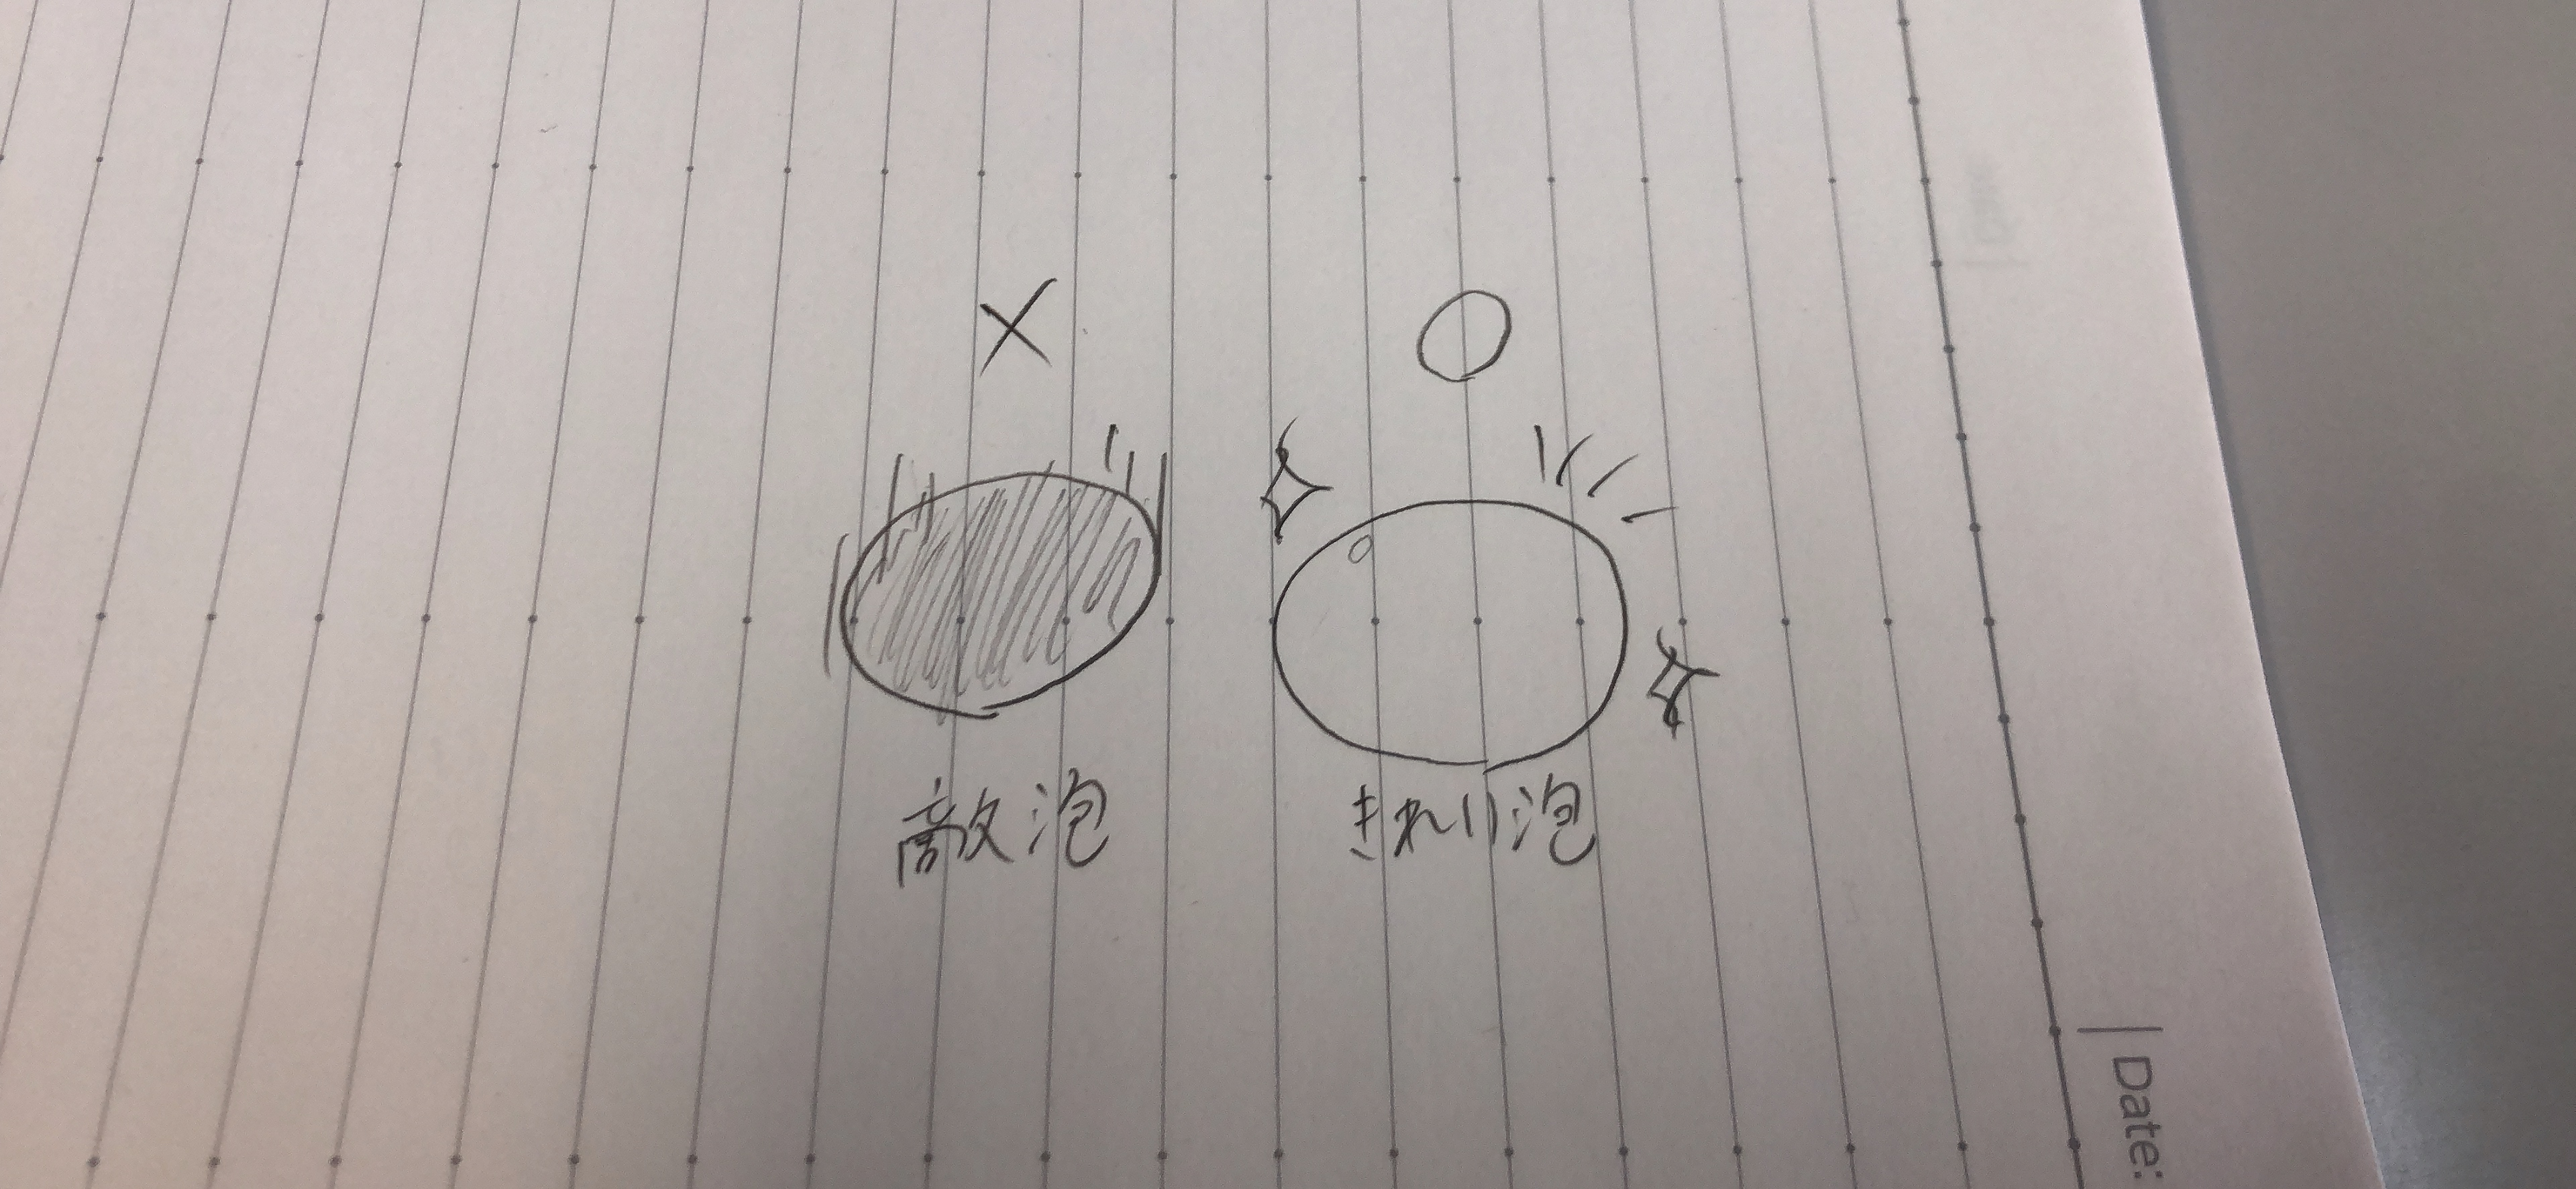 × ○
敵泡 きれい泡
Date: